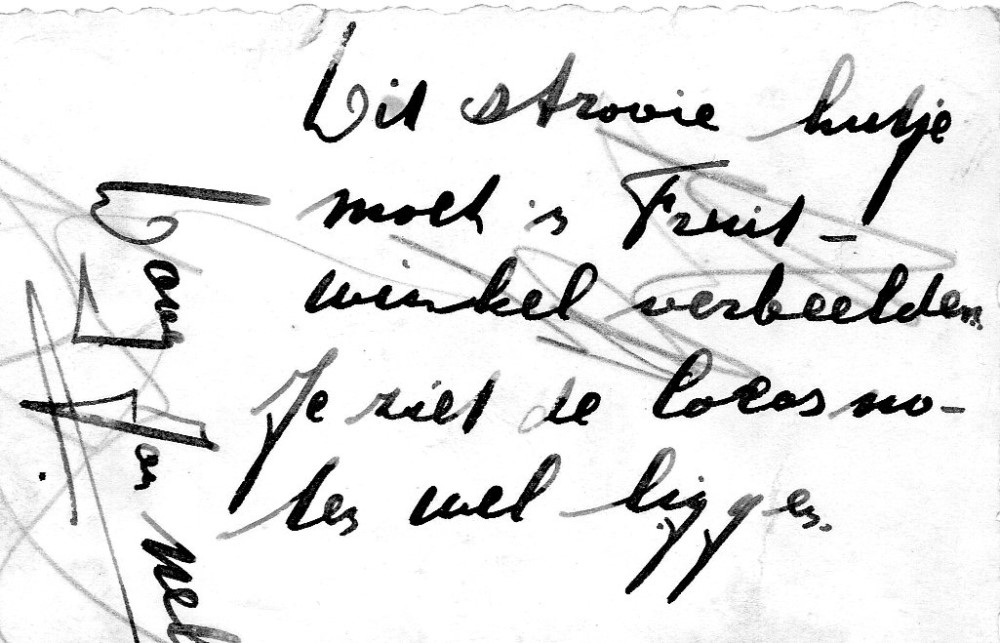 Dit strooie hutje
moet 'n Fruit-
winkel verbeelden.
Je ziet de cocosno-
ten wel liggen.
Jan Nel